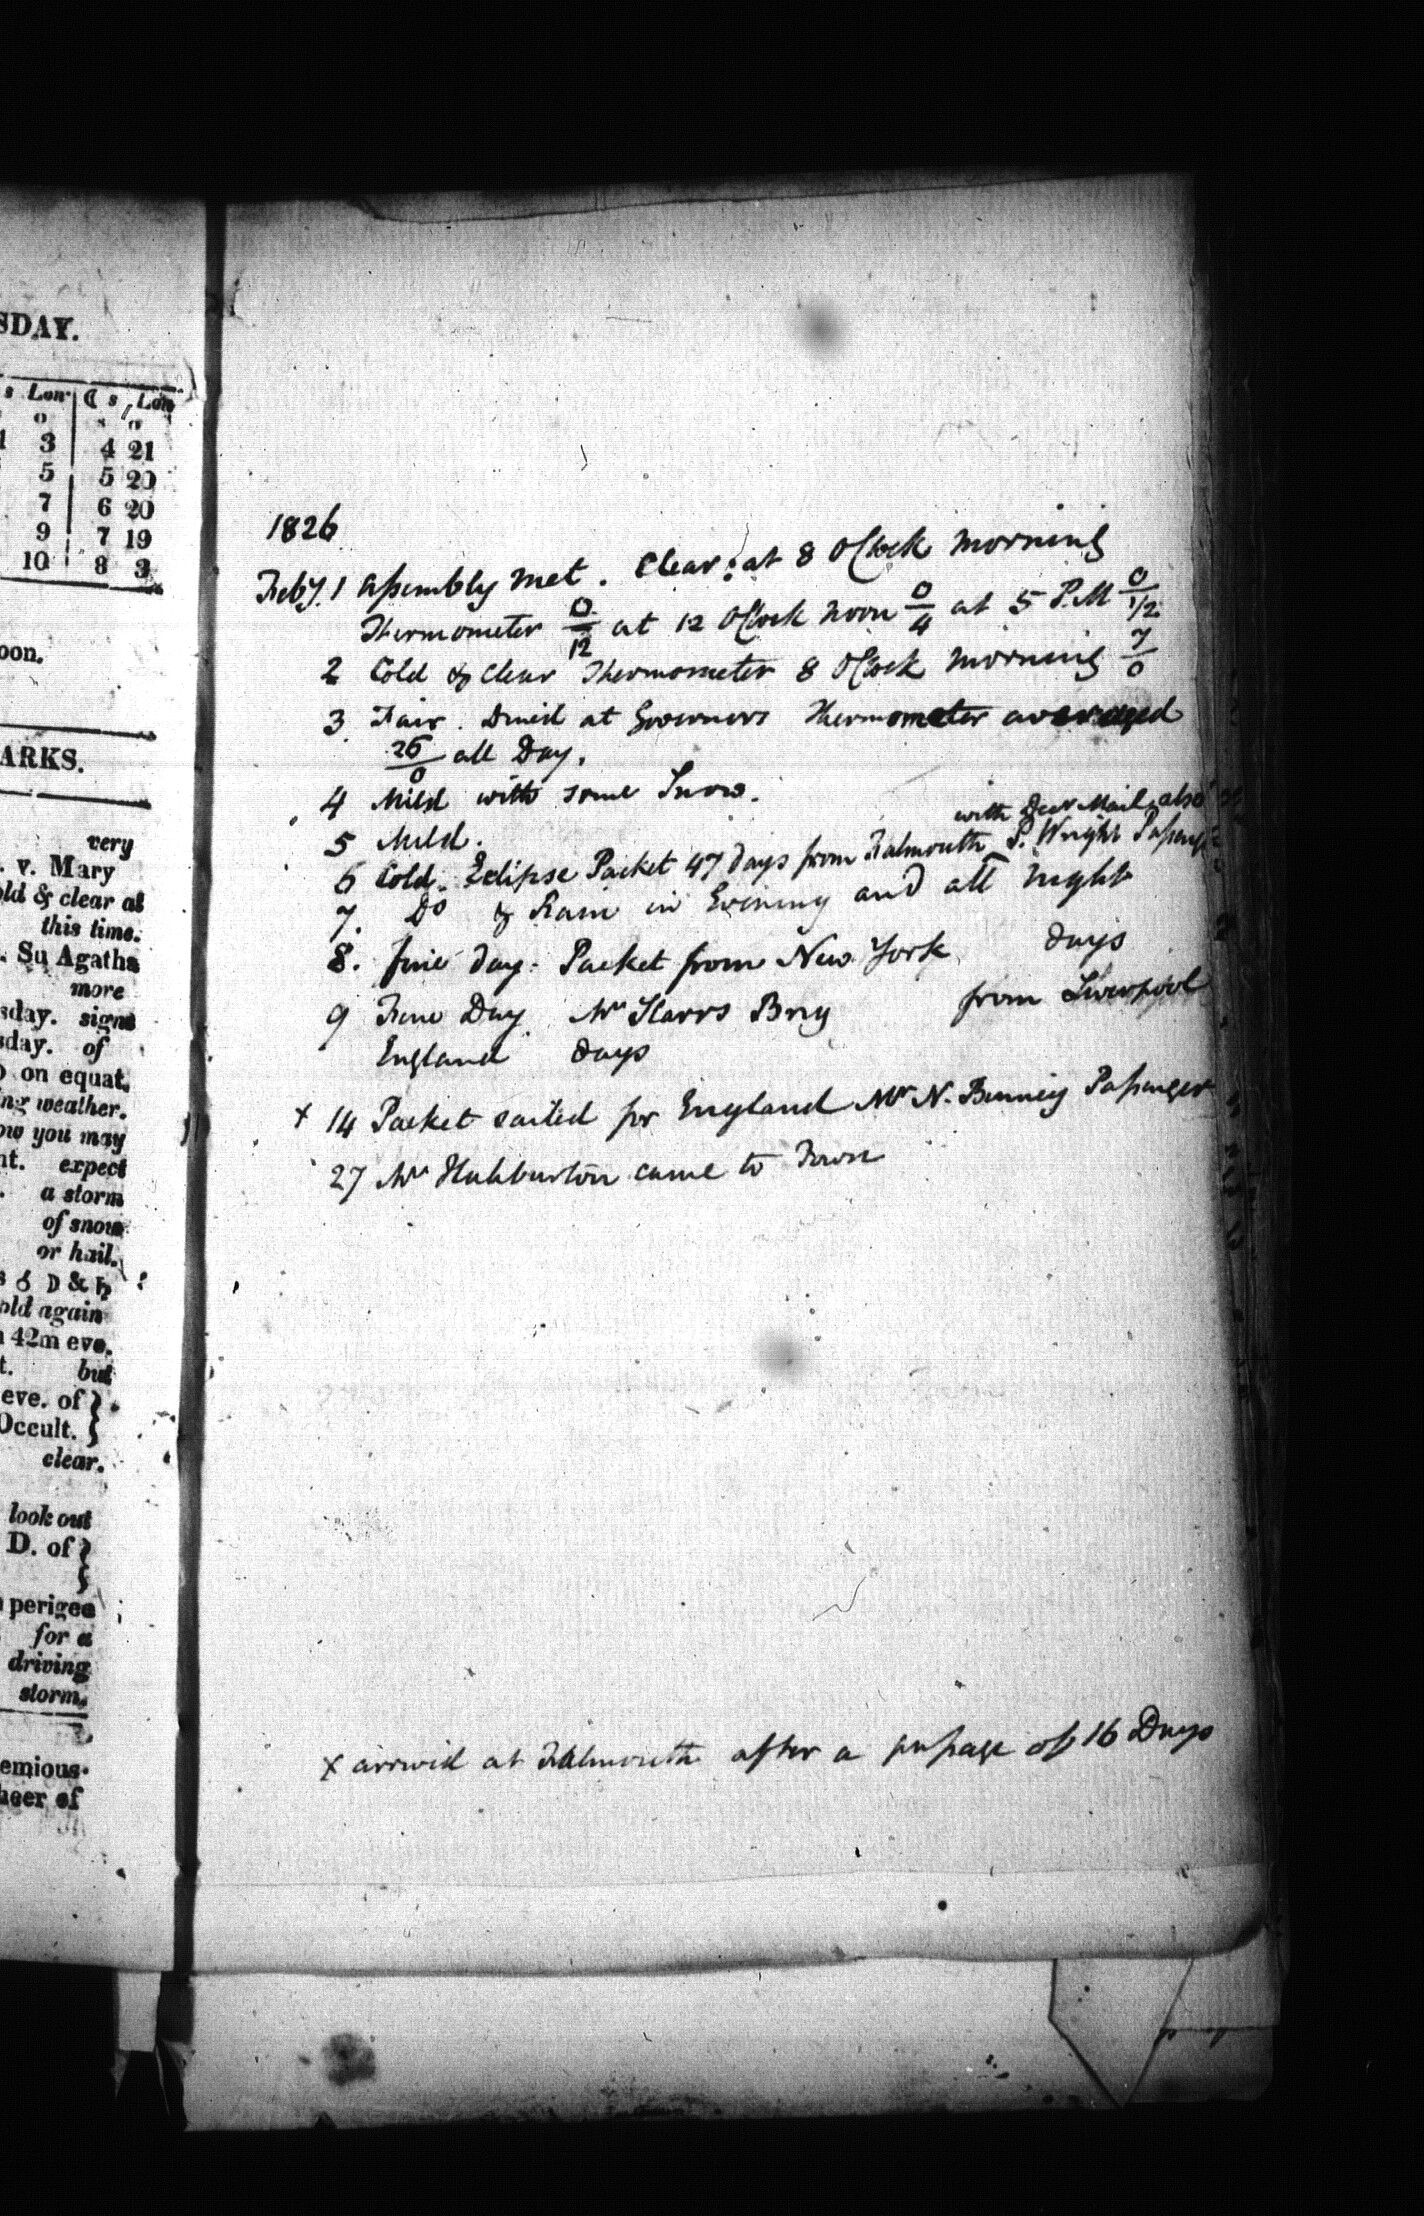 SDAY.
s Lon ☾ s Lon
o s o
1 3 4 21
5 5 20
7 6 20
9 7 19
10 8 3
oon.
ARKS.
very
. v. Mary
old & clear at
this time.
. Su Agatha
more
sday. signs
sday. of
on equat.
ng weather.
ow you may
nt. expect
. a storm
of snow
or hail.
s ☌ ☽ & ♄
old again
42m eve.
t. but
eve. of }
Occult. }
clear.
look out
D. of }
perigee
for a
driving
storm.
emious
heer of
1826
Feby. 1 Assembly met. Clear: at 8 OClock Morning
Thermometer 0/12 at 12 OClock Noon 0/4 at 5 P.M 0/1/2
2 Cold & Clear Thermometer 8 OClock Morning 7/0
3 Fair. Dined at Governors Thermometer averaged
26/0 all Day.
4 Mild with some Snow.
5 Mild.
with Decr Mail, also
6 Cold. Eclipse Packet 47 days from Falmouth P. Wright Passeng
7. Do & Rain in Evening and all Night
8. fine day. Packet from New York days
9 Fine Day Mr Starrs Brig from Liverpool
England days
x 14 Packet sailed for England Mr N. Binney Passenger
27 Mr Haliburton came to Town
x arrived at Falmouth after a passage of 16 Days